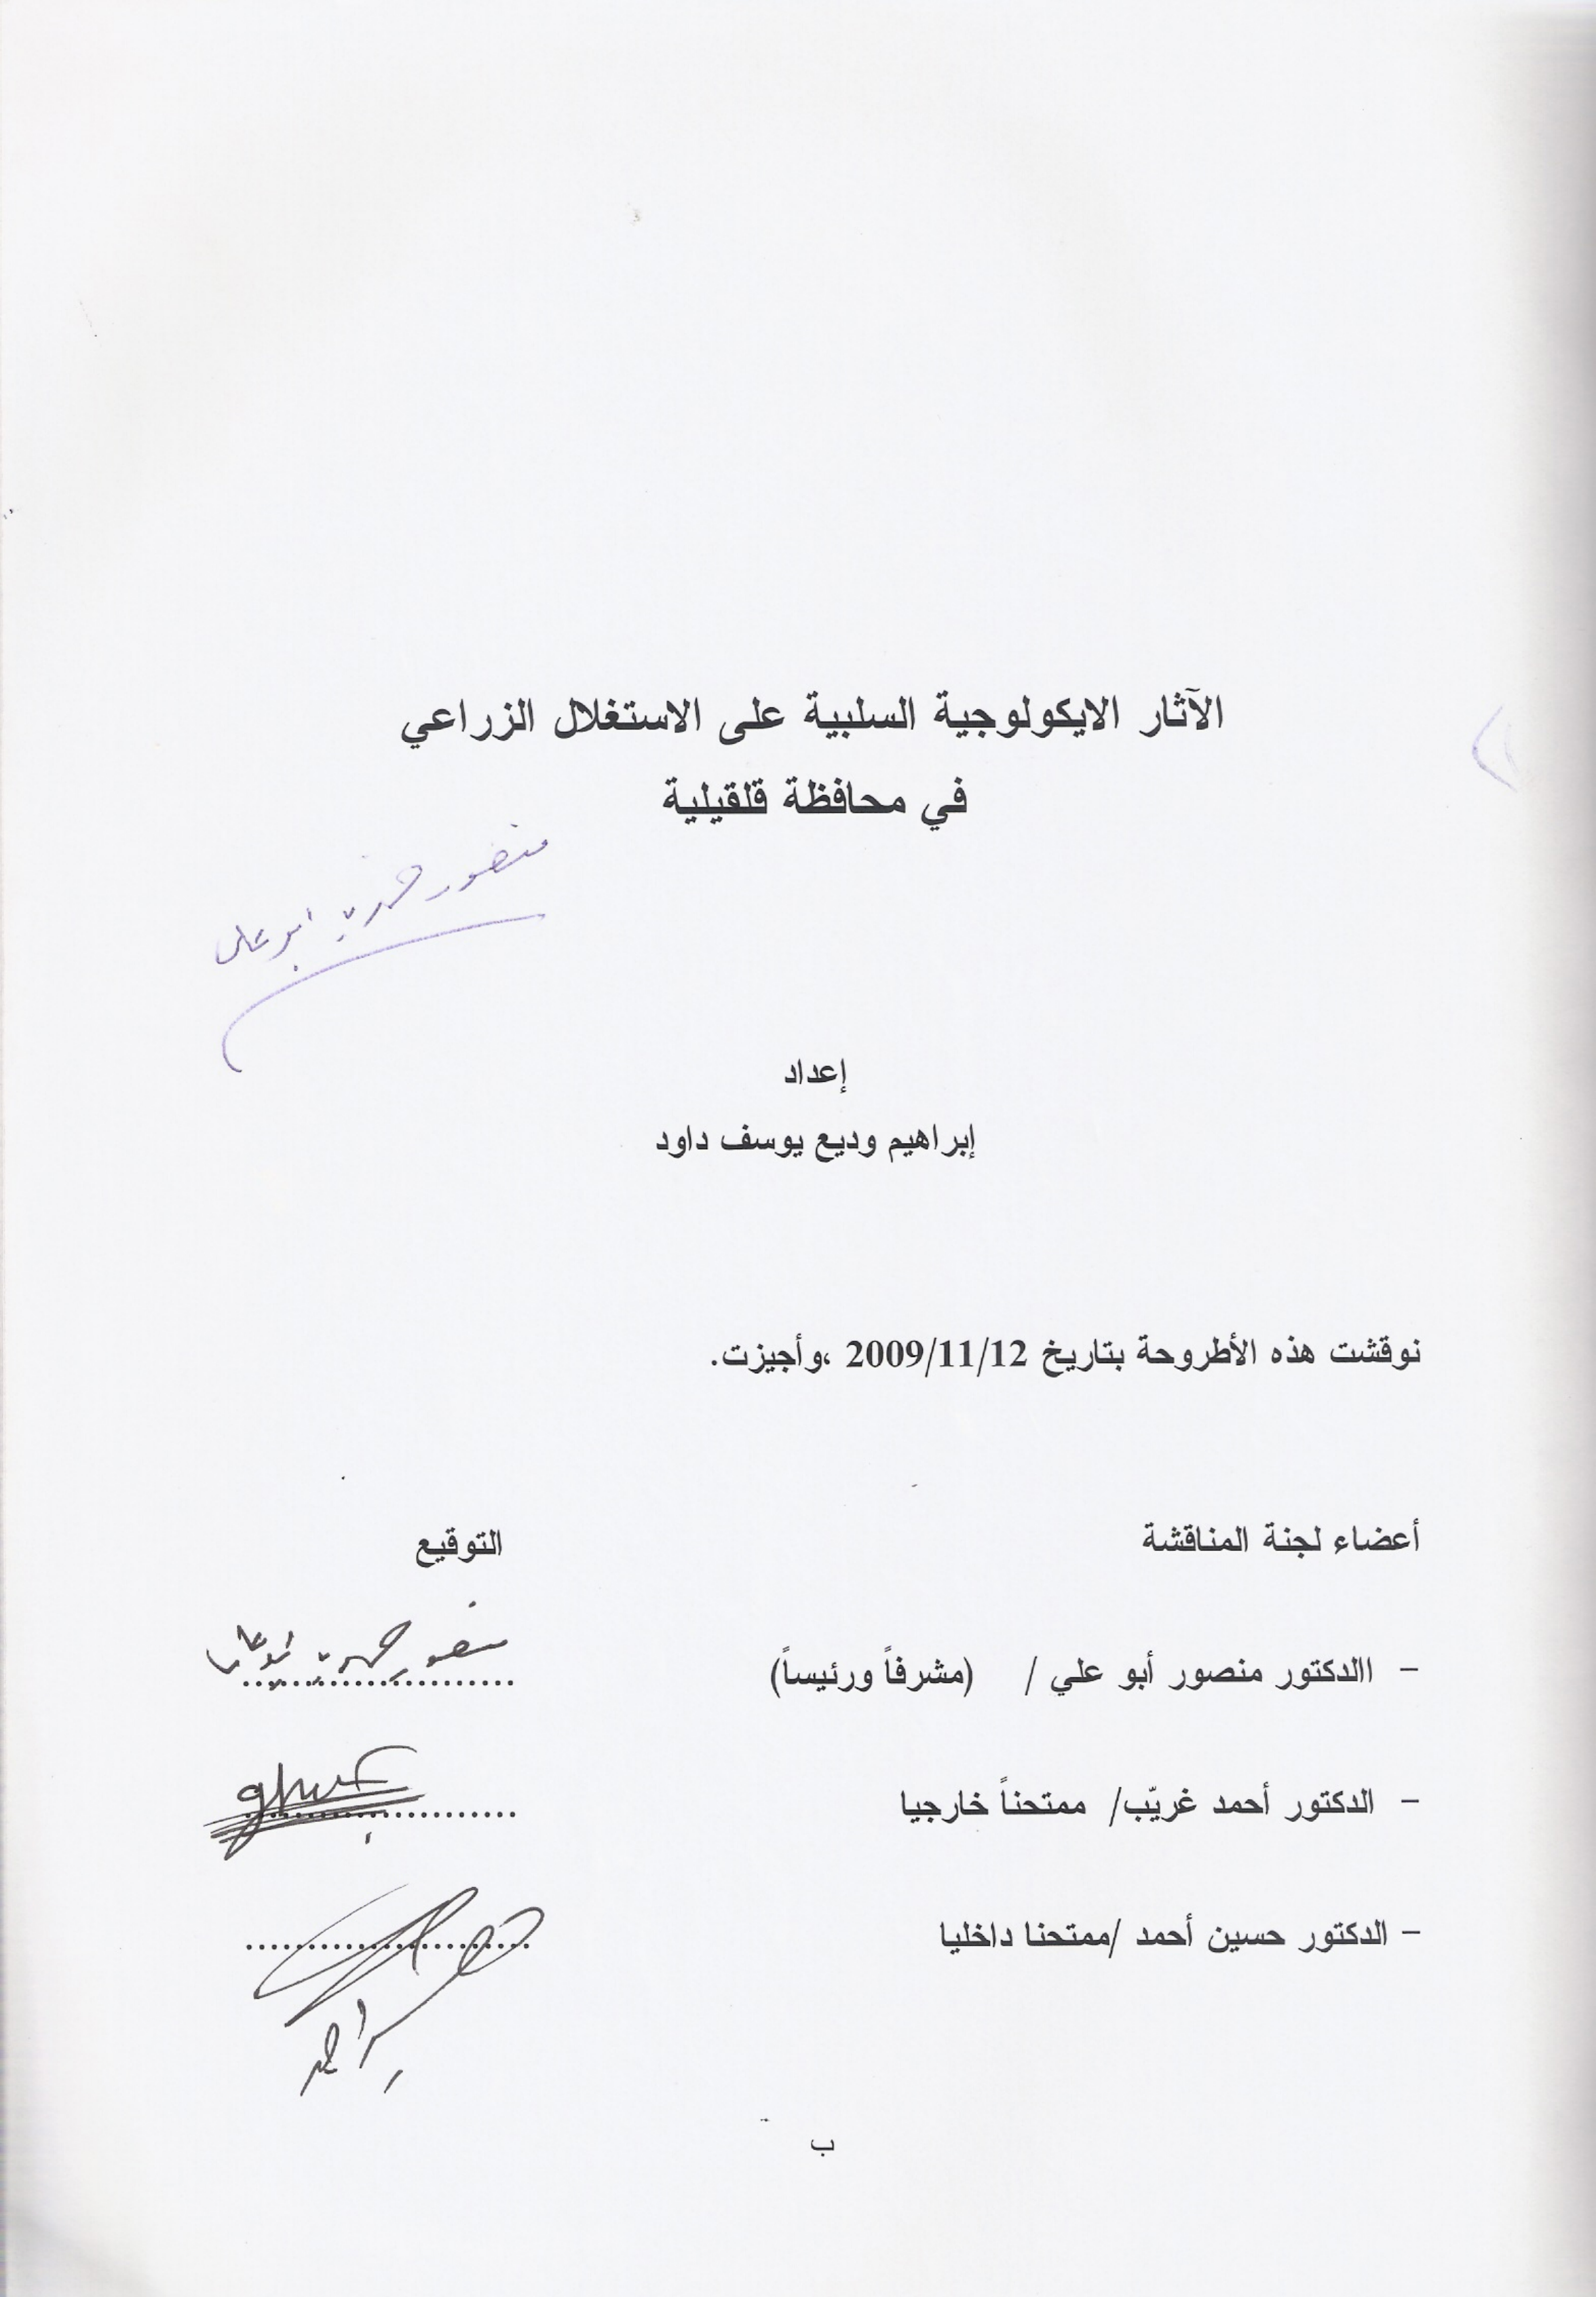 الآثار الايكولوجية السلبية على الاستغلال الزراعي
في محافظة قلقيلية
منصور حمدي ابو علي
إعداد
إبراهيم وديع يوسف داود
نوقشت هذه الأطروحة بتاريخ 2009/11/12 ،وأجيزت.
أعضاء لجنة المناقشة التوقيع
- االدكتور منصور أبو علي / (مشرفاً ورئيساً) ...................... منصور حمدي ابو علي
- الدكتور أحمد غريّب/ ممتحناً خارجيا ......................
- الدكتور حسين أحمد /ممتحنا داخليا ......................
ب